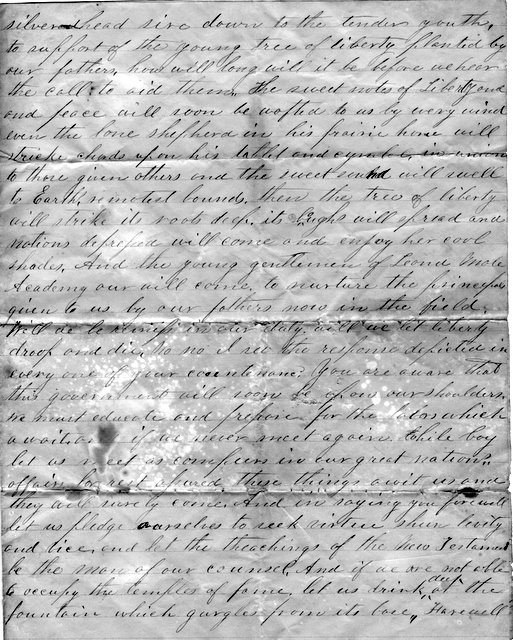 silver head sire down to the tender youth,
to support of the young tree of liberty planted by
our fathers, how will long will it be before we hear
the call to aid them. The sweet notes of Liberty and
and peace will soon be wafted to us by every wind
even the lone shepherd in his prairie home will
stricke chods upon his tablet and cymbol, in union
to those given others and the sweet sound will swell
to Earth, remotest bounds, then the tree of liberty
will strike its roots deep, its bughs will spread and
nations depressed will come and enjoy her cool
shades. And the young gentlemen of Mote
Academy our will come, to nurture the principals
given to us by our fathers now in the field.
Will we in our duty, will we let liberty
droop and die, no no I see the response depicted in
every one of your countenance. You are aware that
this government will soon be upon our shoulders.
we must educate and prepare for the which
awaition if we never meet again while boy
let us meet as compeers in our great nation,,
affairs be rest assured these things await us and
they will surely come. And in saying you farewell
let us pledge ourselves to seek virtue shun levity
and vice, and let the theachings of the New Testament
be the man of our counsel. And if we are not able
to occupy the temples of fame, let us drink deep at the
fountain which gurgles from its base,, "Farewell"